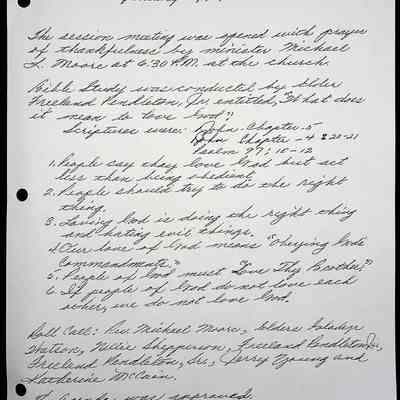 The session meeting was opened with prayer
of thankfulness by minister Michael
L. Moore at 6:30 P.M. at the church.
Bible Study was conducted by Elder
Freeland Pendleton, Jr. entitled, "What does
it mean to love God"?
Scriptures were: John - Chapter - 5
John Chapter - 4 : 20-21
Psalm 97; 10-12
1. People say they love God but act
less than being obedient.
2. People should try to do the right
thing.
3. Loving God is doing the right thing
and hating evil things.
4. Our love of God means "Obeying God's
Commandments."
5. People of God must "Love Thy Brother".
6. If people of God do not love each
other, we do not love God.
Roll Call: Rev. Michael Moore, Elders
Watson, Nellie Shepperson, Freeland Pendleton, Jr.,
Freeland Pendleton, Sr., Jerry Young and
Katherine McCain.
was approved.